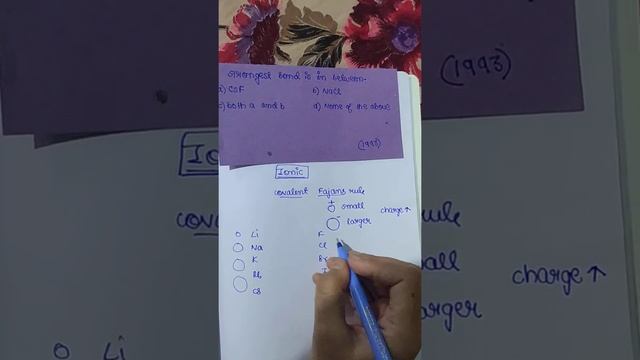 Strongest bond is in between.
a) CsF b) NaCl
c) both a and b d) None of the above
(1993)
Ionic
covalent Fajans rule
+ small
- larger
charge ↑
Li
Na
K
Rb
Cs
F
Cl
Br
I
(1993)
charge ↑
Li